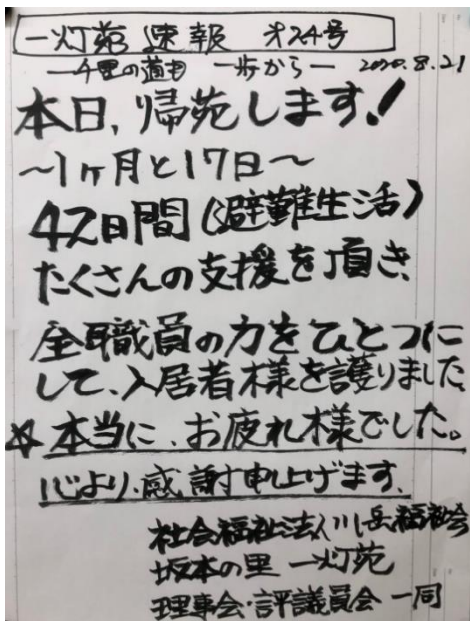 一灯苑 速報 オ24号
―千里の道も 一歩から― 2020.8.21
本日、帰苑します!
〜1ヶ月と17日〜
47日間(避難生活)
たくさんの支援を頂き、
全職員の力をひとつに
して、入居者様を護りました
☆本当に、お疲れ様でした。
心より、感謝申上げます、
社会福祉法人川岳福祉会
坂本の里 一灯苑
理事会・評議員会 一同